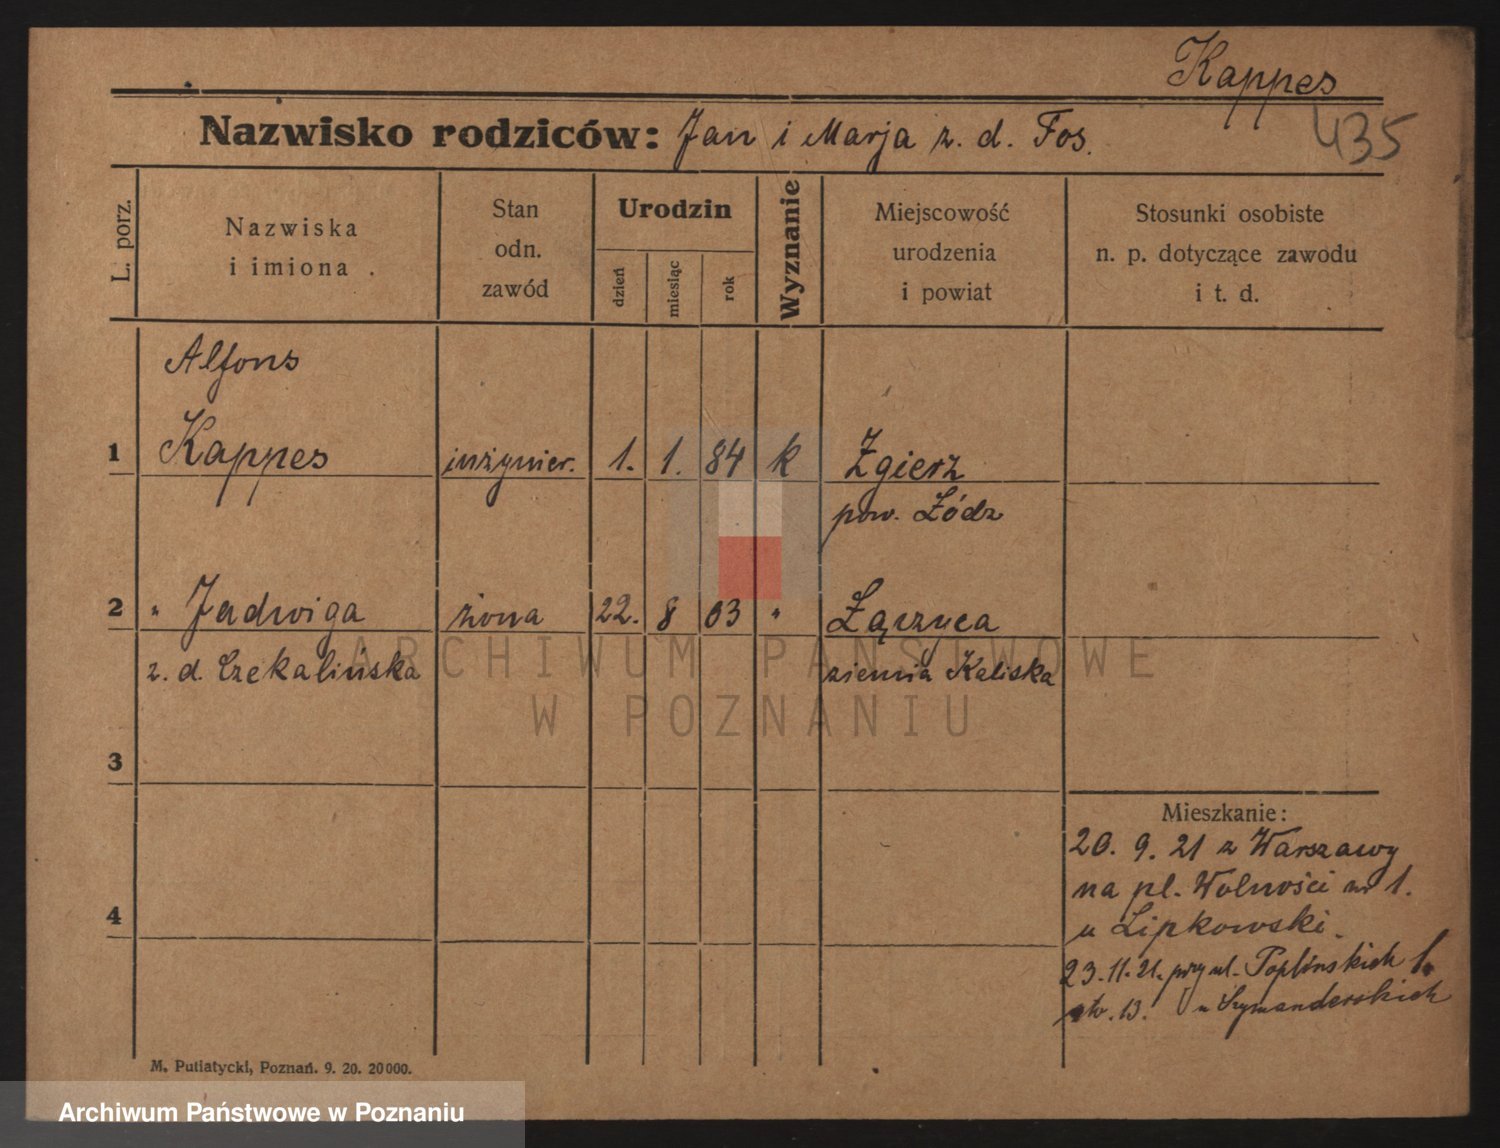 Kappes
435
Nazwisko rodziców: Jan i Marja z. d. Fos.
L. porz.
Nazwiska
i imiona .
Stan
odn.
zawód
Urodzin
dzień
miesiąc
rok
Wyznanie
Miejscowość
urodzenia
i powiat
Stosunki osobiste
n. p. dotyczące zawodu
i t. d.
Alfons
1 Kappes inżynier. 1. 1. 84 k Zgierz
pow. Łódz
2 " Jadwiga żona 22. 8 03 " Łącznea
z. d. Czekalińska ziemia Kaliska
ARCHIWUM PAŃSTWOWE
W POZNANIU
3
Mieszkanie:
20. 9. 21 z Warszawy
na pl. Wolności nr 1.
4
u Lipkowski.
23.11.21. przy ul. Poplińskich 1.
13. u Szymanderskich
M. Putiatycki, Poznań. 9. 20. 20000.
Archiwum Państwowe w Poznaniu